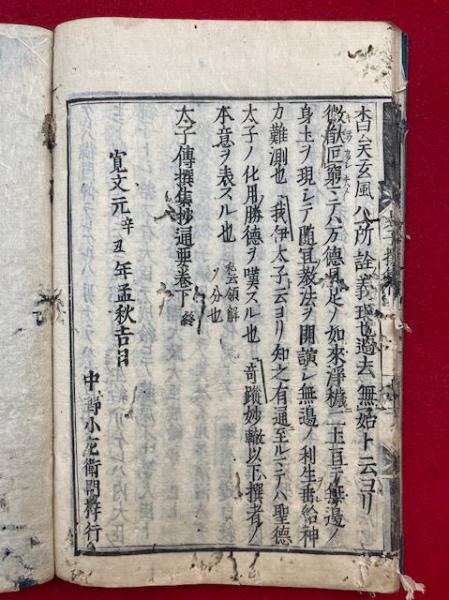 杳矣玄風ハ所詮義理也過去無始ト云ヨリ
微猷叵窮ニテハ万徳具足ノ如來浄穢二土亘テ無邊ノ
身土ヲ現シテ随宜教法ヲ開演シ無邊ノ利生垂給神
力難測也「我伊太子云ヨリ知之有通至ルニテハ聖德
太子ノ化用勝德ヲ嘆スル也「奇蹤妙轍以下撰者ノ
本意ヲ表スル也
領解
ヲ分也
太子傳撰集抄通要卷下終
寛文元辛丑年孟秋吉日
中野小左衛門梓行